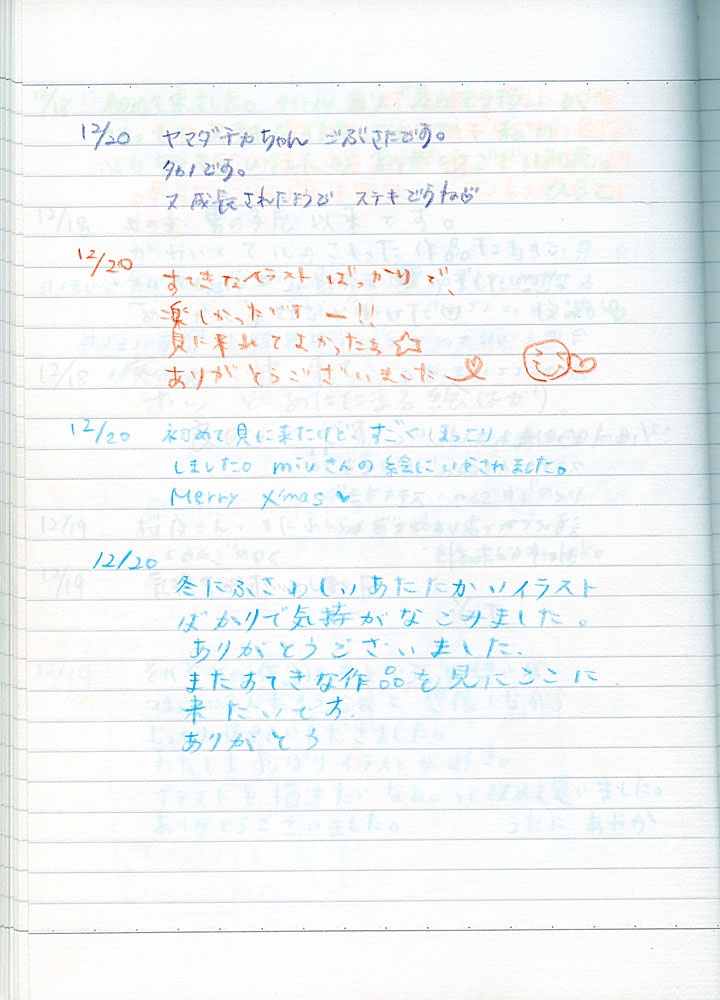 12/20 ヤマダチカちゃん ごぶさたです。
タカノです。
又成長されたようで ステキですね
12/20 すてきなイラストばっかりで、
楽しかったですー!!
見に来れてよかったぁ☆
ありがとうございました♡
12/20 初めて見に来たけど すごくほっこり
しました。 miuさんの絵にいやされました。
Merry X'mas ♥
12/20
冬にふさわしいあたたかいイラスト
ばかりで気持がなごみました。
ありがとうございました.
またすてきな作品を見にここに
来たいです.
ありがとう